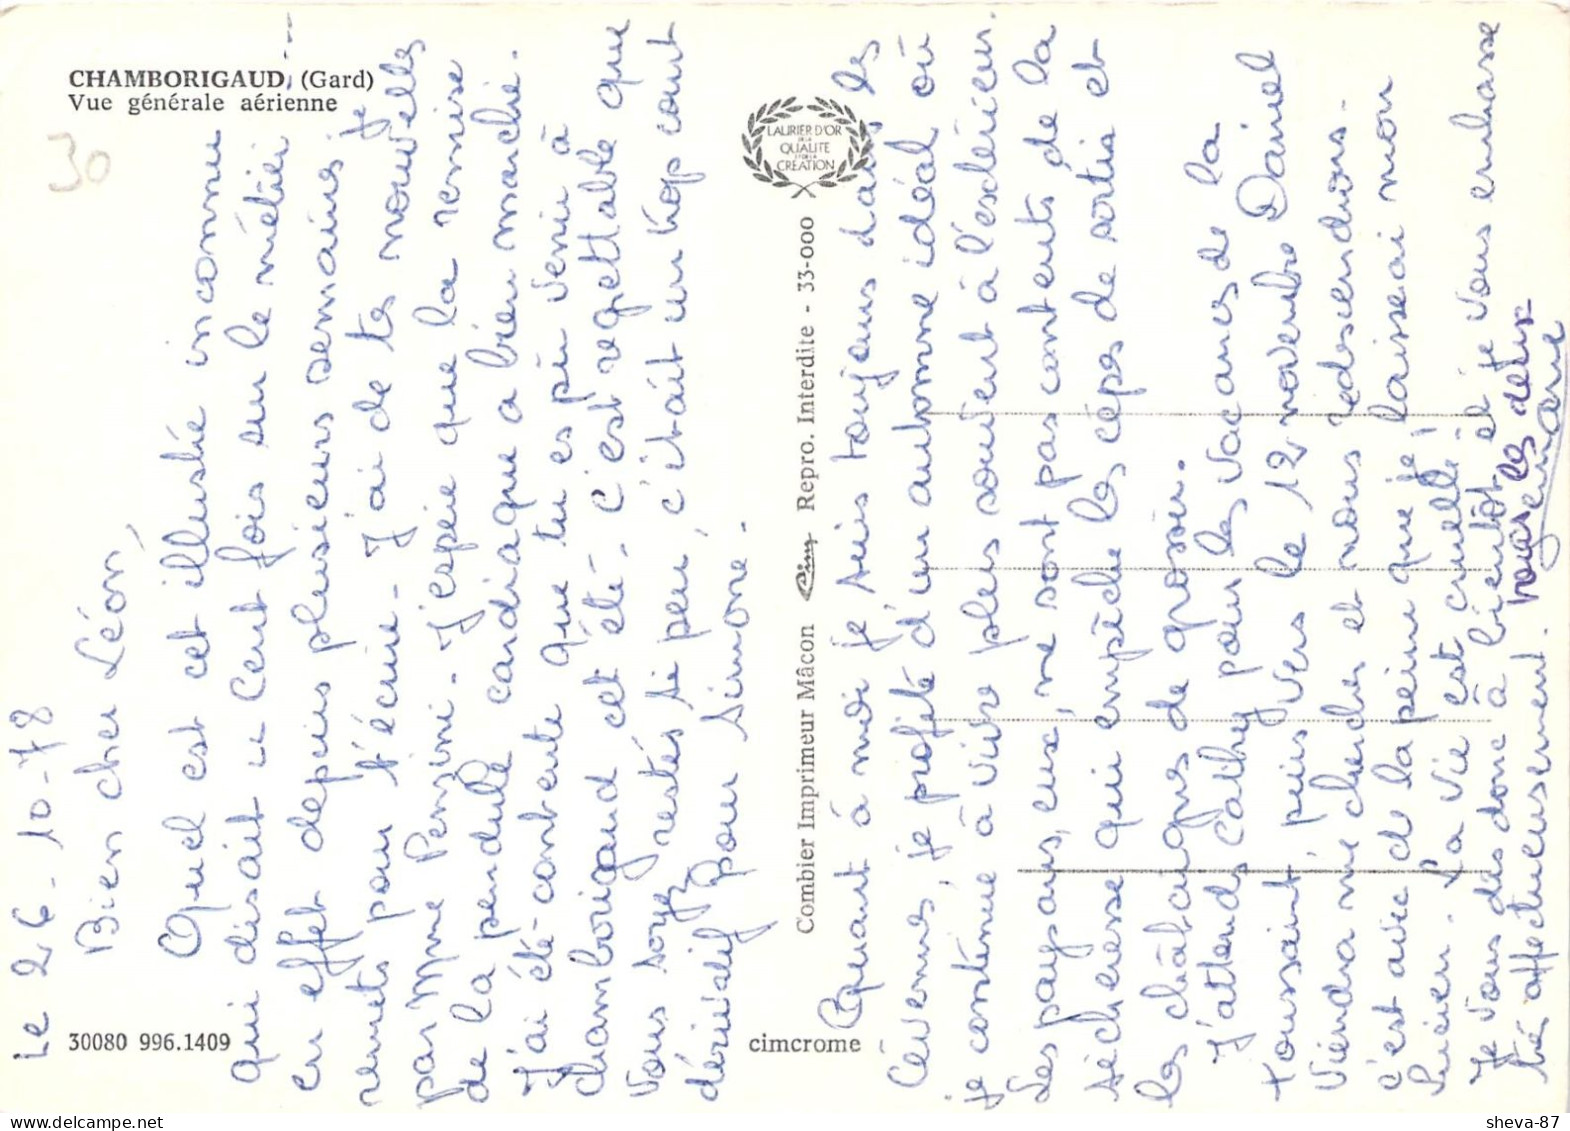 CHAMBORIGAUD, (Gard)
Vue générale aérienne
30
Le 26-10-78
Bien cher Léon,
Quel est cet illustre inconnu
qui disait " Cent fois sur le métier "
en effet depuis plusieurs semaines je
remets pour t'écrire - J'ai de tes nouvelles
par Mme Penzini - J'espère que la remise
de la pendule cardiaque a bien marché.
J'ai été contente que tu es pu venir à
Chamborigaud cet été - C'est regrettable que
vous soyez restés si peu, c'était un trop court
dérivatif pour Simone -
LAURIER D'OR
DE LA
QUALITE
ET DE LA
CREATION
Combier Imprimeur Mâcon Cim Repro. Interdite - 33-000
Quant à moi je suis toujours dans les
Cévennes, je profite d'un automne idéal où
je continue à vivre plus souvent à l'extérieur.
Les paysans, eux, ne sont pas contents de la
sécheresse qui empêche les cèpes de sortir et
les châtaignes de grossir.
J'attends Cathy pour les vacances de la
Toussaint, puis vers le 12 novembre Daniel
viendra me chercher et nous redescendrons -
c'est avec de la peine que je laisserai mon
Lucien - La vie est cruelle !
Je vous dis donc à bientôt et je vous embrasse
très affectueusement. tous les deux
30080 996.1409
cimcrome
sheva-87